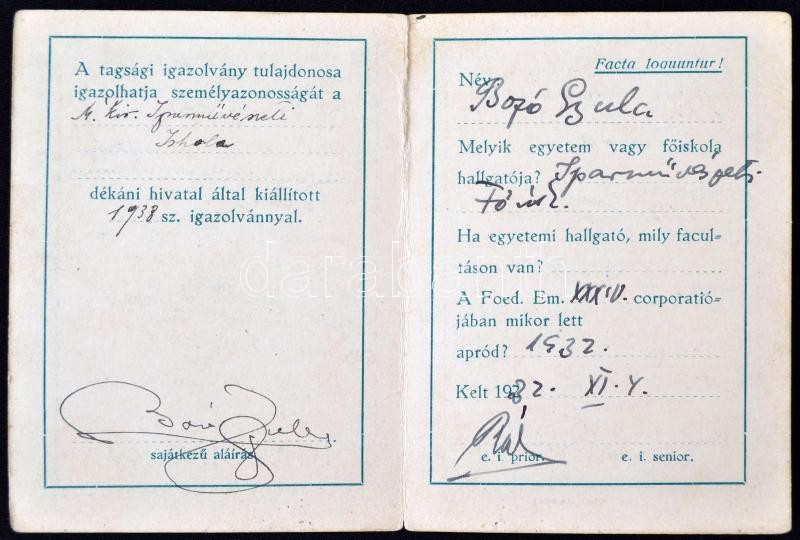 A tagsági igazolvány tulajdonosa
igazolhatja személyazonosságát a
M. Kir. Iparművészeti
Iskola
dékáni hivatal által kiállított
1938 sz. igazolvánnyal.
Bozó Gyula
sajátkezű aláírás.
Facta loquuntur!
Név Bozó Gyula
Melyik egyetem vagy főiskola
hallgatója? Iparművészeti
Főisk.
Ha egyetemi hallgató, mily facul-
táson van?
A Foed. Em. XXXIV. corporatió-
jában mikor lett
apród? 1932.
Kelt 1932. XI. 4.
e. i. prior.
e. i. senior.
darabanth